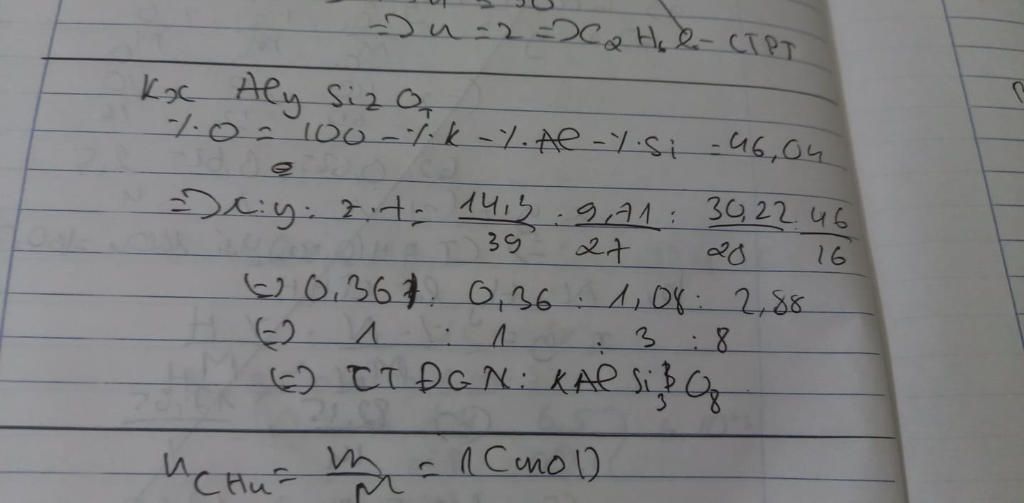 => n = 2 => C2H6O - CTPT
Kx Aly Siz Ot
%O = 100 - %K - %Al - %Si = 46,04
=> x : y : z : t = 14,3/39 : 9,71/27 : 30,22/28 : 46/16
<=> 0,36 : 0,36 : 1,08 : 2,88
<=> 1 : 1 : 3 : 8
<=> CTĐGN: KAlSi3O8
nCH4 = m/M = 1 (mol)